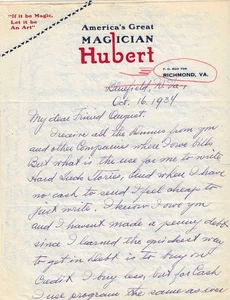 "If it be Magic,
Let it be
An Art"
America's Great
MAGICIAN
Hubert
P. O. BOX 706
RICHMOND, VA.
Bluefield, W. Va.,
Oct. 16, 1934
My dear Friend August.
I receive all the dunnies from you
and other Companies where I owe bills.
But what is the use for me to write
Hard Luck Stories, and when I have
no cash to send I feel cheap to
just write. I know I owe you
and I havent made a penny debt
since I learned the quickest way
to get in debt is to buy on
Credit. I buy less, but for Cash
I use program the same as ever